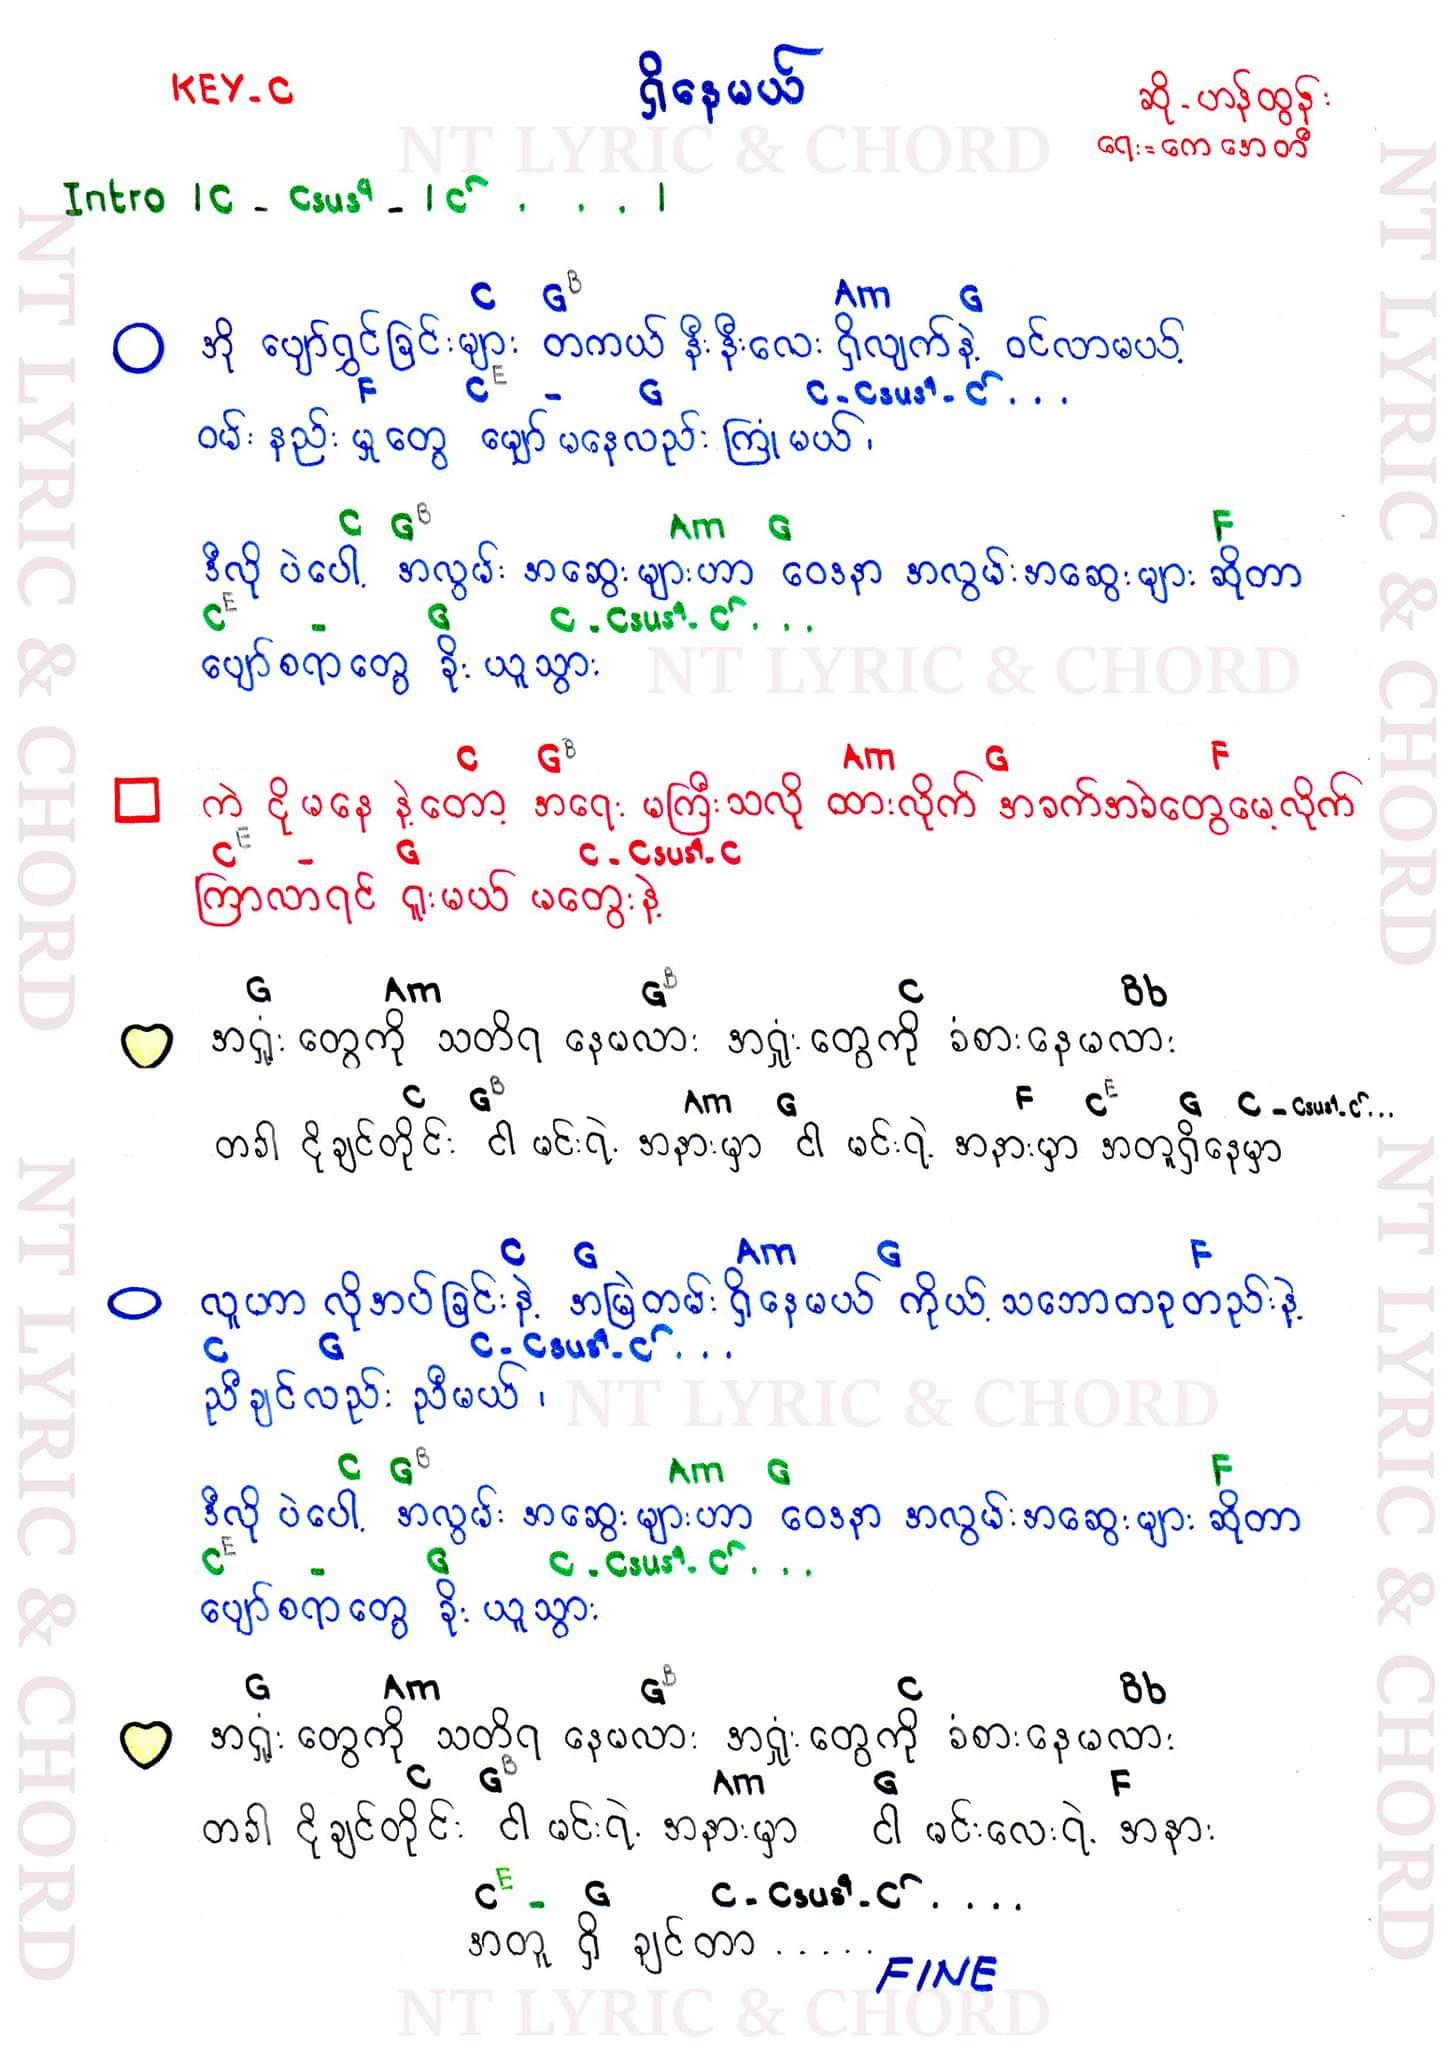 KEY-C
ရှိနေမယ်
ဆို - ဟန်ထွန်း
ရေး = ကေအေတီ
NT LYRIC & CHORD
Intro | C - Csus4 - | C . . . |
C G B Am G
အို ပျော်ရွှင်ခြင်းများ တကယ် နီးနီးလေး ရှိလျက်နဲ့ ဝင်လာမယ့်
F C E - G C - Csus4 - C . . .
ဝမ်းနည်းမှုတွေ မျှော်မနေလည်း ကြုံမယ်၊
C G B Am G F
ဒီလိုပဲပေါ့ အလွမ်းအဆွေးများဟာ ဝေဒနာ အလွမ်းအဆွေးများ ဆိုတာ
C E - G C - Csus4 - C . . .
ပျော်စရာတွေ ခိုးယူသွား
NT LYRIC & CHORD
C G B Am G F
ကဲ ငိုမနေနဲ့တော့ အရေးမကြီးသလို ထားလိုက် အခက်အခဲတွေမေ့လိုက်
C E - G C - Csus4 - C
ကြာလာရင် ရူးမယ် မတွေးနဲ့
G Am G B C Bb
အရှုံးတွေကို သတိရနေမလား အရှုံးတွေကို ခံစားနေမလား
C G B Am G F C E G C - Csus4 - C ...
တခါ ငိုချင်တိုင်း ငါ မင်းရဲ့ အနားမှာ ငါ မင်းရဲ့ အနားမှာ အတူရှိနေမှာ
C G Am G F
လူဟာ လိုအပ်ခြင်းနဲ့ အမြဲတမ်းရှိနေမယ် ကိုယ့်သဘောတခုတည်းနဲ့
C G C - Csus4 - C . . .
ညီချင်လည်း ညီမယ်၊
NT LYRIC & CHORD
C G B Am G F
ဒီလိုပဲပေါ့ အလွမ်းအဆွေးများဟာ ဝေဒနာ အလွမ်းအဆွေးများ ဆိုတာ
C E - G C - Csus4 - C . . .
ပျော်စရာတွေ ခိုးယူသွား
G Am G B C Bb
အရှုံးတွေကို သတိရနေမလား အရှုံးတွေကို ခံစားနေမလား
C G B Am G F
တခါ ငိုချင်တိုင်း ငါ မင်းရဲ့ အနားမှာ ငါ မင်းလေးရဲ့ အနား
C E - G C - Csus4 - C . . . .
အတူ ရှိ ချင်တာ . . . . .
FINE
NT LYRIC & CHORD
NT LYRIC & CHORD
NT LYRIC & CHORD
NT LYRIC & CHORD
NT LYRIC & CHORD